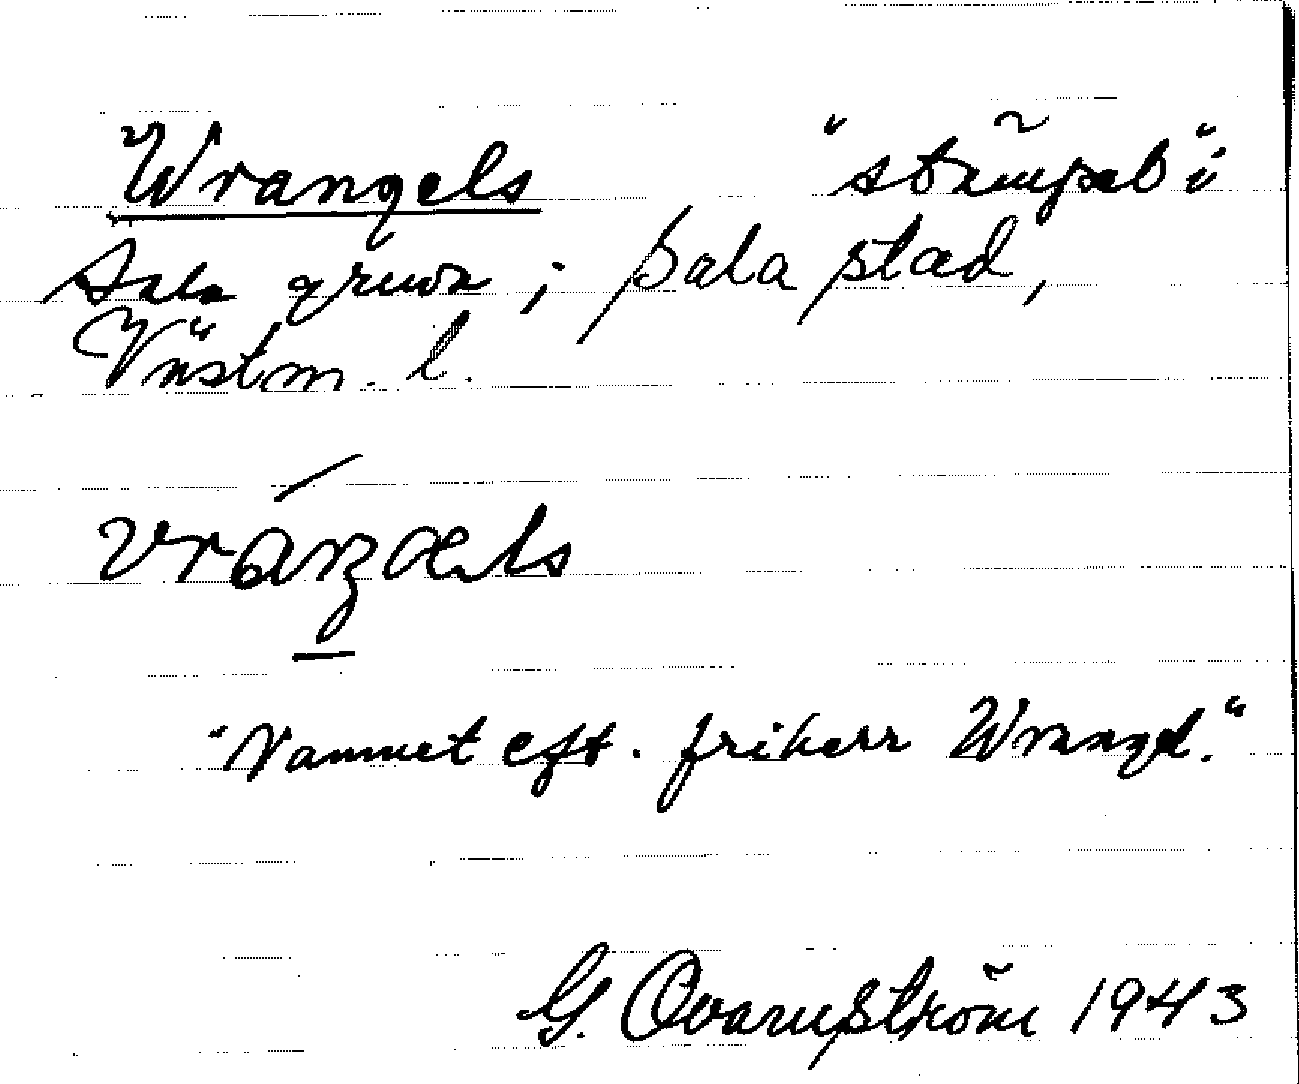 Wrangels "stämpel" i
Sala gruva; Sala stad,
Västm. l.
"Namnet eft. friherr Wrangel."
G. Qvarnström 1943